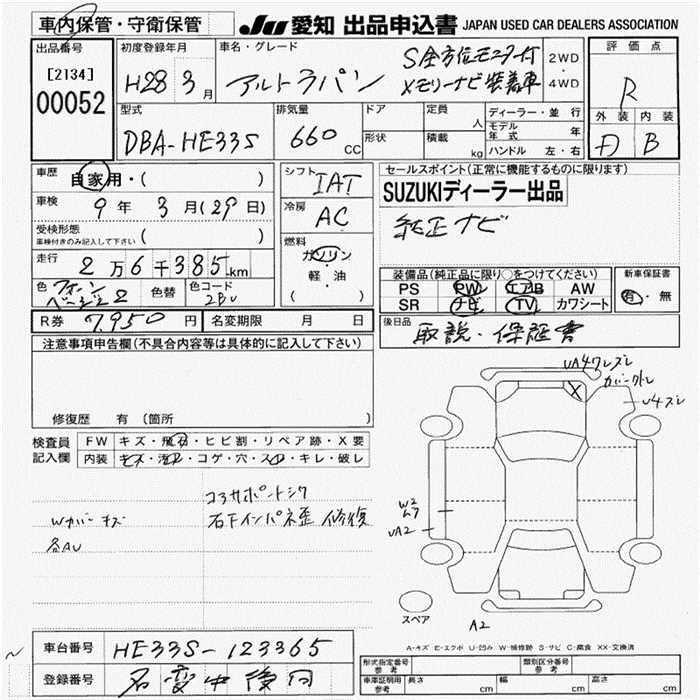 車内保管・守衛保管
JU 愛知 出品申込書 JAPAN USED CAR DEALERS ASSOCIATION
出品番号
[2134]
00052
初度登録年月
H28年3月
車名・グレード
アルトラパン
S全方位モニター付
Xメモリーナビ装着車
2WD
・
4WD
評価点
R
外装 内装
D B
型式
DBA-HE33S
排気量
660 CC
ドア
形状
定員 人
積載 kg
ディーラー・並行
モデル年式 年
ハンドル 左・右
車歴
自家用・( )
車検
9年3月(29日)
受検形態
車検付きのみ記入して下さい ( )
走行
2万6千385km
色 フォーン
ベージュ2
色替
色コード
シフト
IAT
冷房
AC
燃料
ガソリン
軽・油
( )
セールスポイント(正常に機能するものに限ります)
SUZUKIディーラー出品
純正ナビ
装備品(純正品に限り○をつけてください)
PS PW エアB AW
SR ナビ TV カワシート
新車保証書
有・無
R券 7,950円
名変期限 月 日
後日品
取説・保証書
注意事項申告欄(不具合内容等は具体的に記入して下さい)
修復歴 有 (箇所 )
検査員
記入欄
FW キズ・飛石・ヒビ割・リペア跡・X要
内装 キズ・汚れ・コゲ・穴・スレ・キレ・破レ
コアサポートシワ
Wカバーキズ
右Fインパネ歪 修復
各AU
UA4ワレズレ
カバー外レ
U4ズレ
X
W2
ムラ
UA2
スペア
A2
A-キズ E-エクボ U-凹み W-補修跡 S-サビ C-腐食 XX-交換済
車台番号
HE33S-123365
登録番号
名変中後日
形式指定番号
参考
類別区分番号
参考
車庫証明用
参考
長さ cm
幅 cm
高さ cm